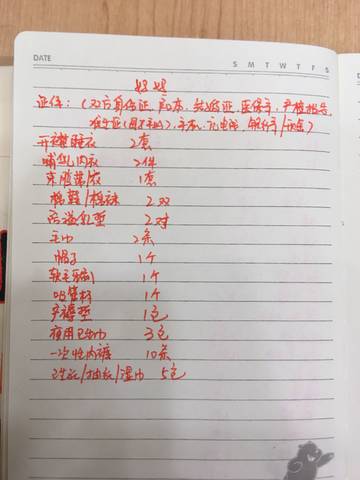 DATE
S M T W T F S
妈妈
证件：（双方身份证、户口本、结婚证、医保卡、产检报告、
准生证（医院要的）、手机、充电线、银行卡/现金）
开襟睡衣 2套
哺乳内衣 2件
束腹带/衣 1套
棉鞋/棉袜 2双
防溢乳垫 2对
毛巾 2条
帽子 1个
软毛牙刷 1个
吸管杯 1个
产褥垫 1包
夜用卫生巾 3包
一次性内裤 10条
卫生纸/抽纸/湿巾 5包